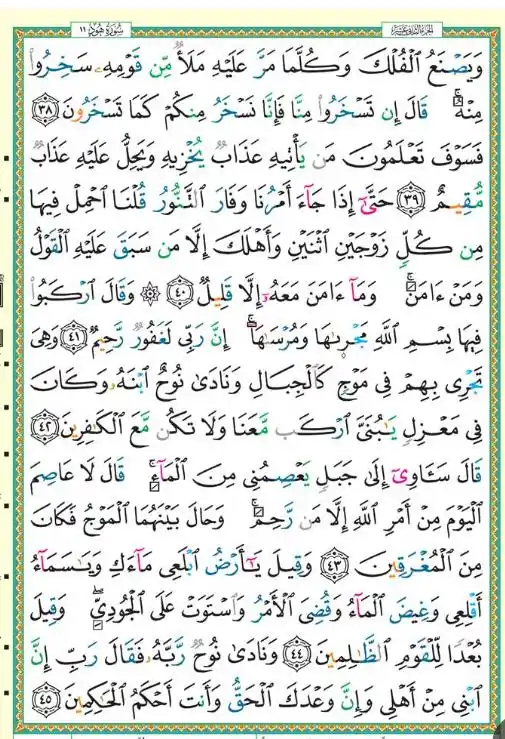 سُورَةُ هُودٍ ١١ الجزء الثاني عشر
وَيَصْنَعُ ٱلْفُلْكَ وَكُلَّمَا مَرَّ عَلَيْهِ مَلَأٌ مِّن قَوْمِهِۦ سَخِرُوا۟
مِنْهُ ۚ قَالَ إِن تَسْخَرُوا۟ مِنَّا فَإِنَّا نَسْخَرُ مِنكُمْ كَمَا تَسْخَرُونَ ٣٨
فَسَوْفَ تَعْلَمُونَ مَن يَأْتِيهِ عَذَابٌ يُخْزِيهِ وَيَحِلُّ عَلَيْهِ عَذَابٌ
مُّقِيمٌ ٣٩ حَتَّىٰٓ إِذَا جَآءَ أَمْرُنَا وَفَارَ ٱلتَّنُّورُ قُلْنَا ٱحْمِلْ فِيهَا
مِن كُلٍّ زَوْجَيْنِ ٱثْنَيْنِ وَأَهْلَكَ إِلَّا مَن سَبَقَ عَلَيْهِ ٱلْقَوْلُ
وَمَنْ ءَامَنَ ۚ وَمَآ ءَامَنَ مَعَهُۥٓ إِلَّا قَلِيلٌ ٤٠ ۞ وَقَالَ ٱرْكَبُوا۟
فِيهَا بِسْمِ ٱللَّهِ مَجْر۪ىٰهَا وَمُرْسَىٰهَآ ۚ إِنَّ رَبِّى لَغَفُورٌ رَّحِيمٌ ٤١ وَهِىَ
تَجْرِى بِهِمْ فِى مَوْجٍ كَٱلْجِبَالِ وَنَادَىٰ نُوحٌ ٱبْنَهُۥ وَكَانَ
فِى مَعْزِلٍ يَـٰبُنَىَّ ٱرْكَب مَّعَنَا وَلَا تَكُن مَّعَ ٱلْكَـٰفِرِينَ ٤٢
قَالَ سَـَٔاوِىٓ إِلَىٰ جَبَلٍ يَعْصِمُنِى مِنَ ٱلْمَآءِ ۚ قَالَ لَا عَاصِمَ
ٱلْيَوْمَ مِنْ أَمْرِ ٱللَّهِ إِلَّا مَن رَّحِمَ ۚ وَحَالَ بَيْنَهُمَا ٱلْمَوْجُ فَكَانَ
مِنَ ٱلْمُغْرَقِينَ ٤٣ وَقِيلَ يَـٰٓأَرْضُ ٱبْلَعِى مَآءَكِ وَيَـٰسَمَآءُ
أَقْلِعِى وَغِيضَ ٱلْمَآءُ وَقُضِىَ ٱلْأَمْرُ وَٱسْتَوَتْ عَلَى ٱلْجُودِىِّ ۖ وَقِيلَ
بُعْدًا لِّلْقَوْمِ ٱلظَّـٰلِمِينَ ٤٤ وَنَادَىٰ نُوحٌ رَّبَّهُۥ فَقَالَ رَبِّ إِنَّ
ٱبْنِى مِنْ أَهْلِى وَإِنَّ وَعْدَكَ ٱلْحَقُّ وَأَنتَ أَحْكَمُ ٱلْحَـٰكِمِينَ ٤٥